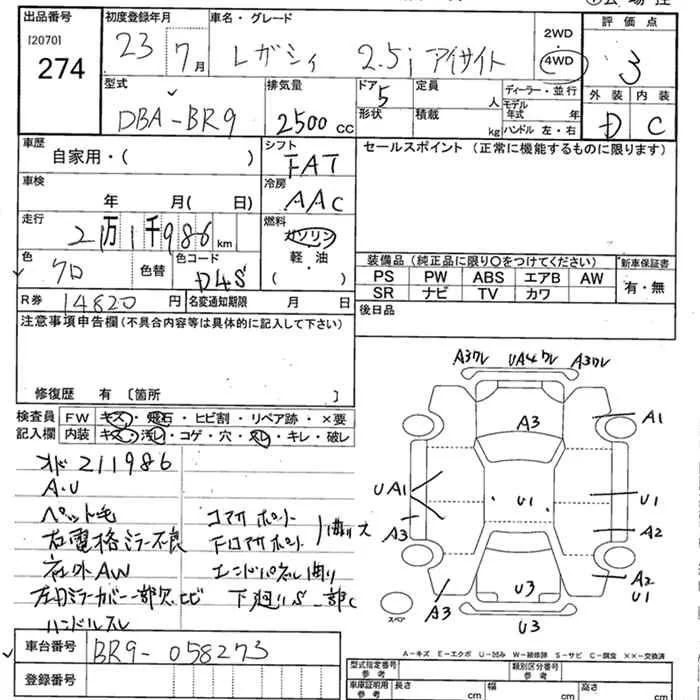 出品番号
[2070]
274
初度登録年月
23 7月
車名・グレード
レガシィ 2.5i アイサイト
2WD
4WD
評価点
3
外装 内装
D C
型式
DBA-BR9
排気量
2500cc
ドア 5
形状
定員
人
積載
kg
ディーラー・並行
モデル年式 年
ハンドル 左・右
車歴
自家用・( )
シフト
FAT
車検
年 月( 日)
冷房
AAC
走行
2 1万1千986km
燃料
ガソリン
軽・油
( )
色
クロ
色替
色コード
D4S
R券 14820円
名変通知期限 月 日
セールスポイント (正常に機能するものに限ります)
装備品 (純正品に限り○をつけてください)
PS PW ABS エアB AW
SR ナビ TV カワ
新車保証書
有・無
後日品
注意事項申告欄(不具合内容等は具体的に記入して下さい)
修復歴 有 〔箇所 〕
検査員記入欄
FW キズ・飛石・ヒビ割・リペア跡・×要
内装 キズ・汚レ・コゲ・穴・スレ・キレ・破レ
オド 211986
A・U
ペット毛
右電格ミラー不良
社外AW
左ドアミラーカバー一部欠ヒビ
ハンドルスレ
コアサポート
下コアサポート
曲り ス
エンドパネル曲り
下廻りS 一部C
A3ワレ UA4ワレ A3ワレ
A3
A1
UA1
U1
U1
A3
A2
A2
U1
A3
U3
U3
スペア
A-キズ E-エクボ U-凹み W-補修跡 S-サビ C-腐食 ××-交換済
車台番号
BR9-058273
登録番号
型式指定番号
参考
類別区分番号
参考
車庫証明用
参考
長さ cm
幅 cm
高さ cm